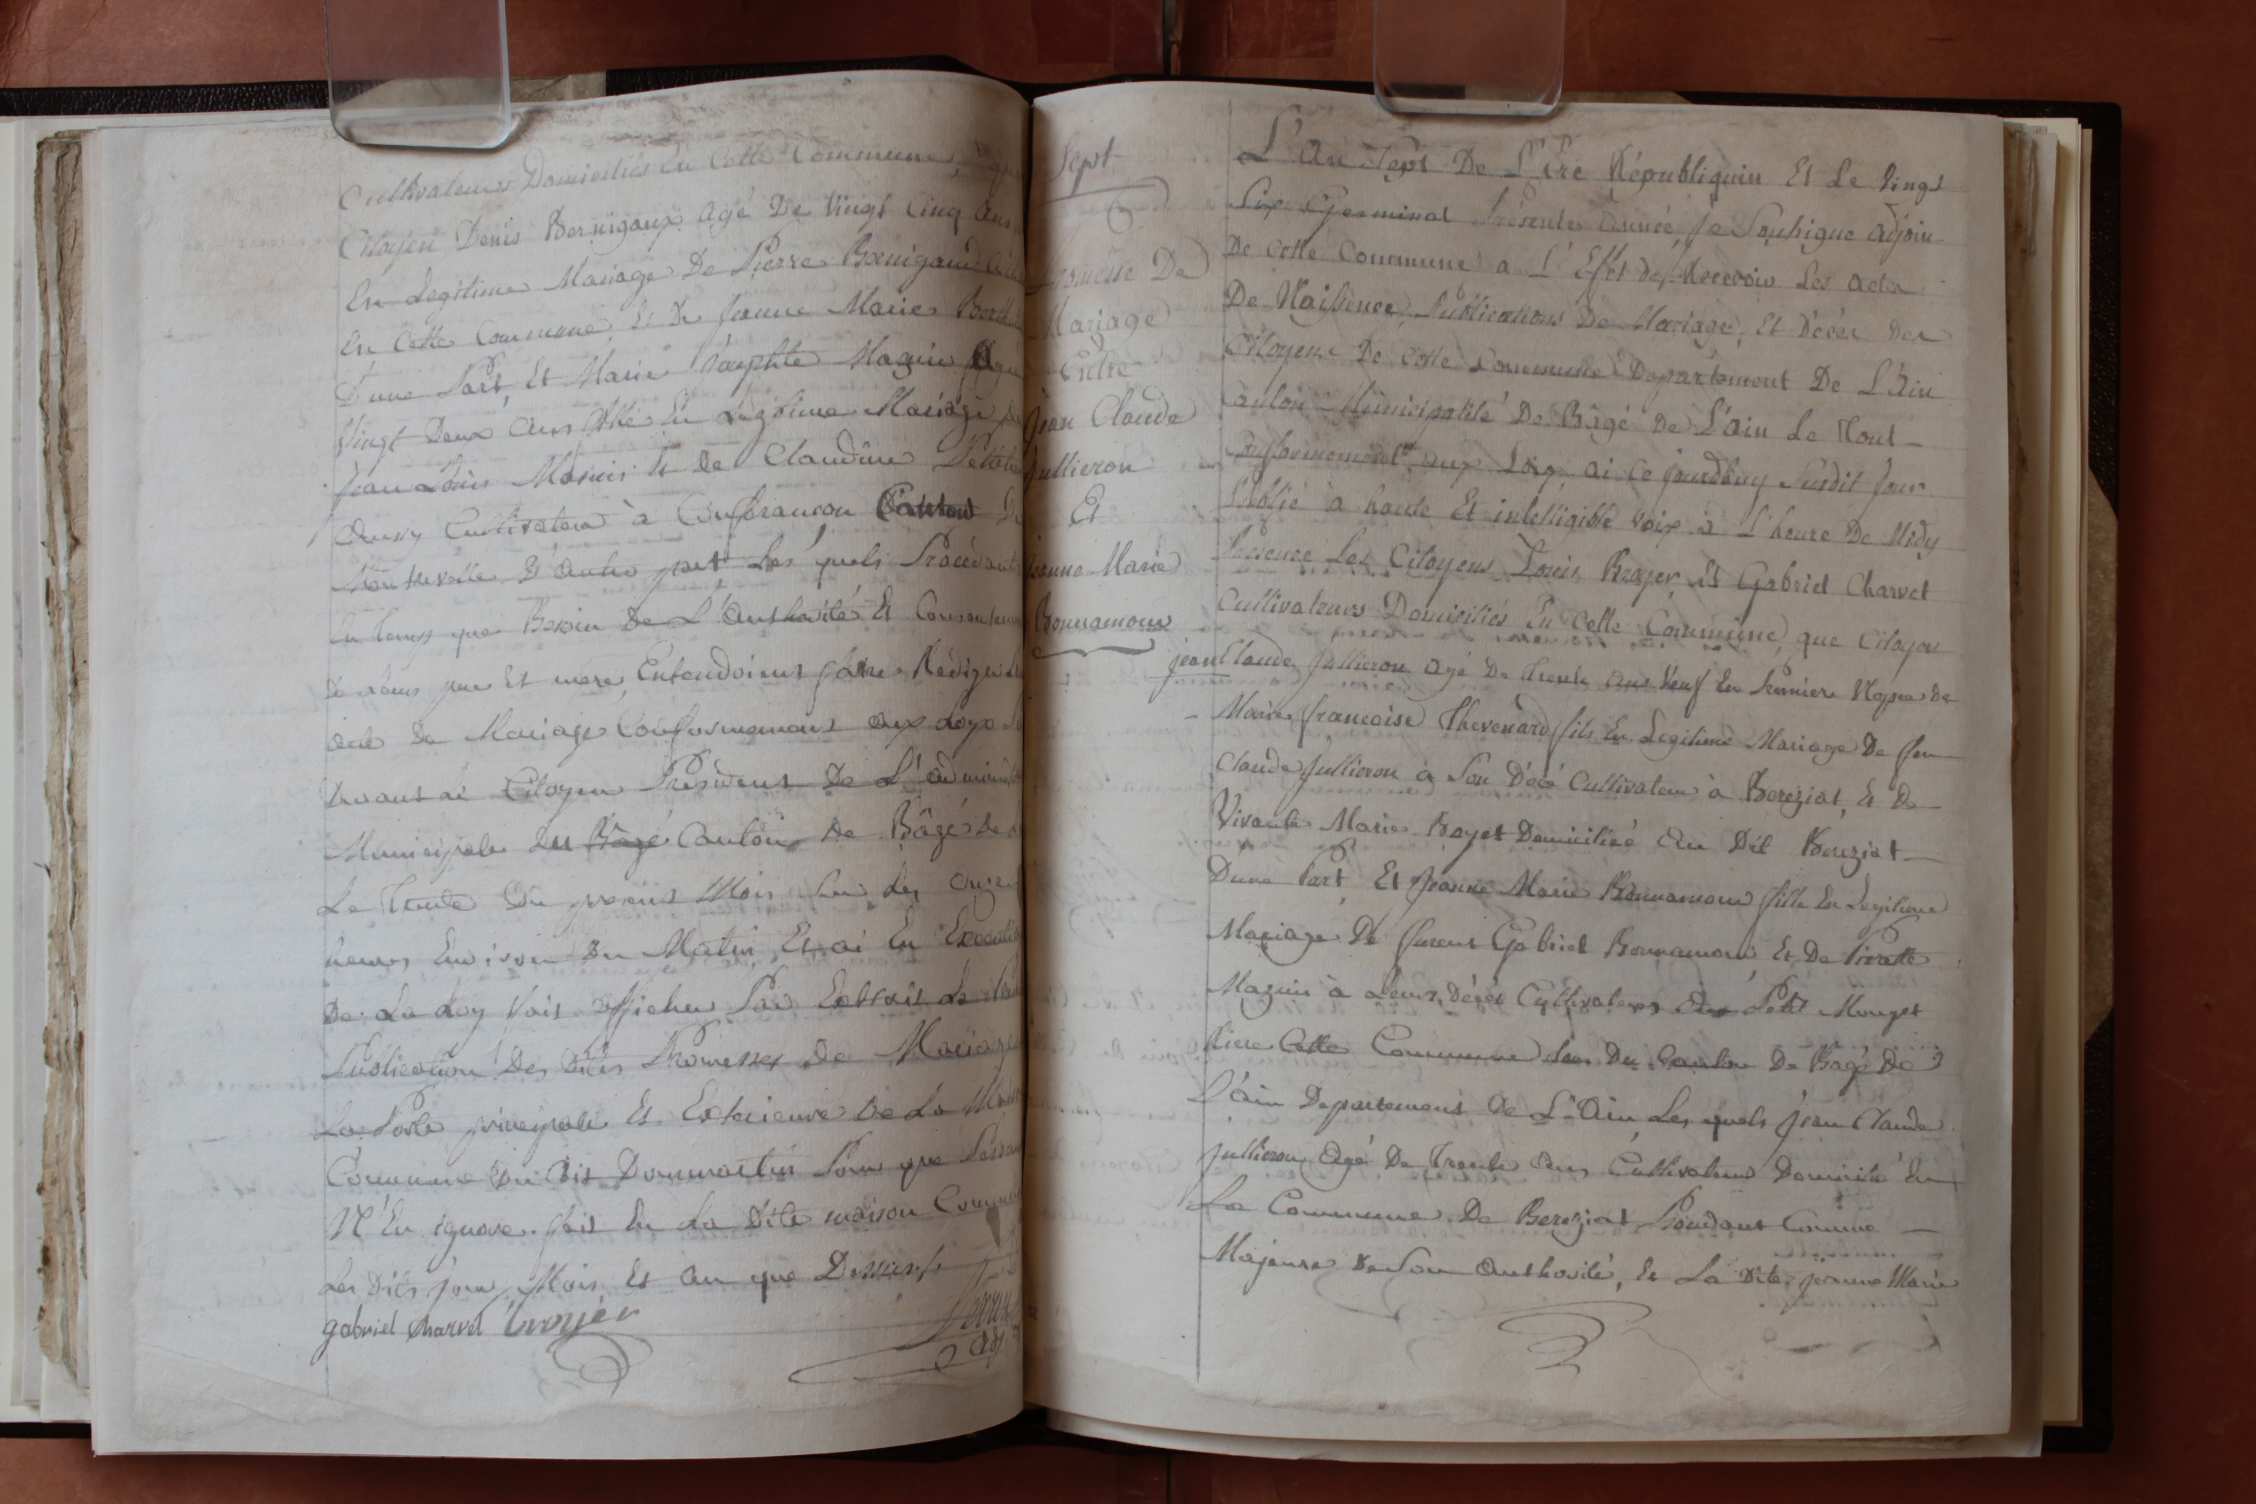 Cultivateurs Domiciliés En Cette Commune, que
Citoyen Denis Bernigaux agé De Vingt Cinq ans
En Legitime Mariage De Pierre Bernigaud
En Cette Commune, Et De Jeanne Marie
D'une Part, Et Marie Baptiste Mazuir
Vingt Deux Ans fille En Legitime Mariage
Jean Louis Mazuir Et De Claudine
Aussy Cultivateur à Confrancon Canton De
Montrevelle D'autre part Les quels Procédants
En temps que Besoin De L'authorité Et Consentement
De Leurs pere Et mere, Entendoient faire Rédiger
acte De Mariage Conformement aux Loyx
Devant Le Citoyen Président De L'administ
Municipale Du Bâgé Canton De Bâgé De
Le Trente Du présent Mois Sur Les Onze
heures Environ Du Matin Et ai En Exécution
De La Loy fait afficher Par Extrait La
Publication Des Dites Promesses De Mariage
La Porte principale Et Exterieure De La Maison
Commune Du Dit Dommartin Pour que Personne
N'En ignore. fait En La Dite maison Commune
Les Dits jour, Mois Et an que Dessus
gabriel charvet Broyer
adj
Sept
Promesse De
Mariage
Entre
Jean Claude
Jullieron
Et
Jeanne Marie
Bonnamour
L'An Sept De L'Ere Républiquin Et Le Vingt
Six Germinal Présente année, Je Soussigne adjoin
De Cette Commune a L'Effet de, Recevoir Les Actes
De Naissence, Publications De Mariage, Et Décéx Des
Citoyens De Cette Commune Departement De L'Ain
Canton Municipalité De Bâgé De L'ain Le Tout
Conformement aux Loix, ai Ce jourdhuy Susdit Jour
Publié à haute Et intelligible Voix à L'heure De Midy
Presence Les Citoyens Louis Broyer, Et Gabriel Charvet
Cultivateurs Domiciliés En Cette Commune, que Citoyen
jean Claude Jullieron agé De Trente ans Veuf En Premiere Nopce de
Marie francoise Thevenard fils En Legitime Mariage De feu
Claude Jullieron à Son Décé Cultivateur à Bereziat, Et De
Vivante Marie Boyet Domiciliée Au Dit Bereziat
D'une Part Et Jeanne Marie Bonnamour fille En Legitime
Mariage De furent Gabriel Bonnamour, Et De Pierrette
Mazuir à Leurs Décés Cultivateurs Au Petit Mouget
Riere Cette Commune Du Canton De Bagé De
L'ain Departement De L'Ain Les quels Jean Claude
Jullieron Agé De Trente Ans Cultivateur Domicilié En
La Commune De Bereziat Procedant Comme
Majeure De Son Authorité, Et La Dite Jeanne Marie